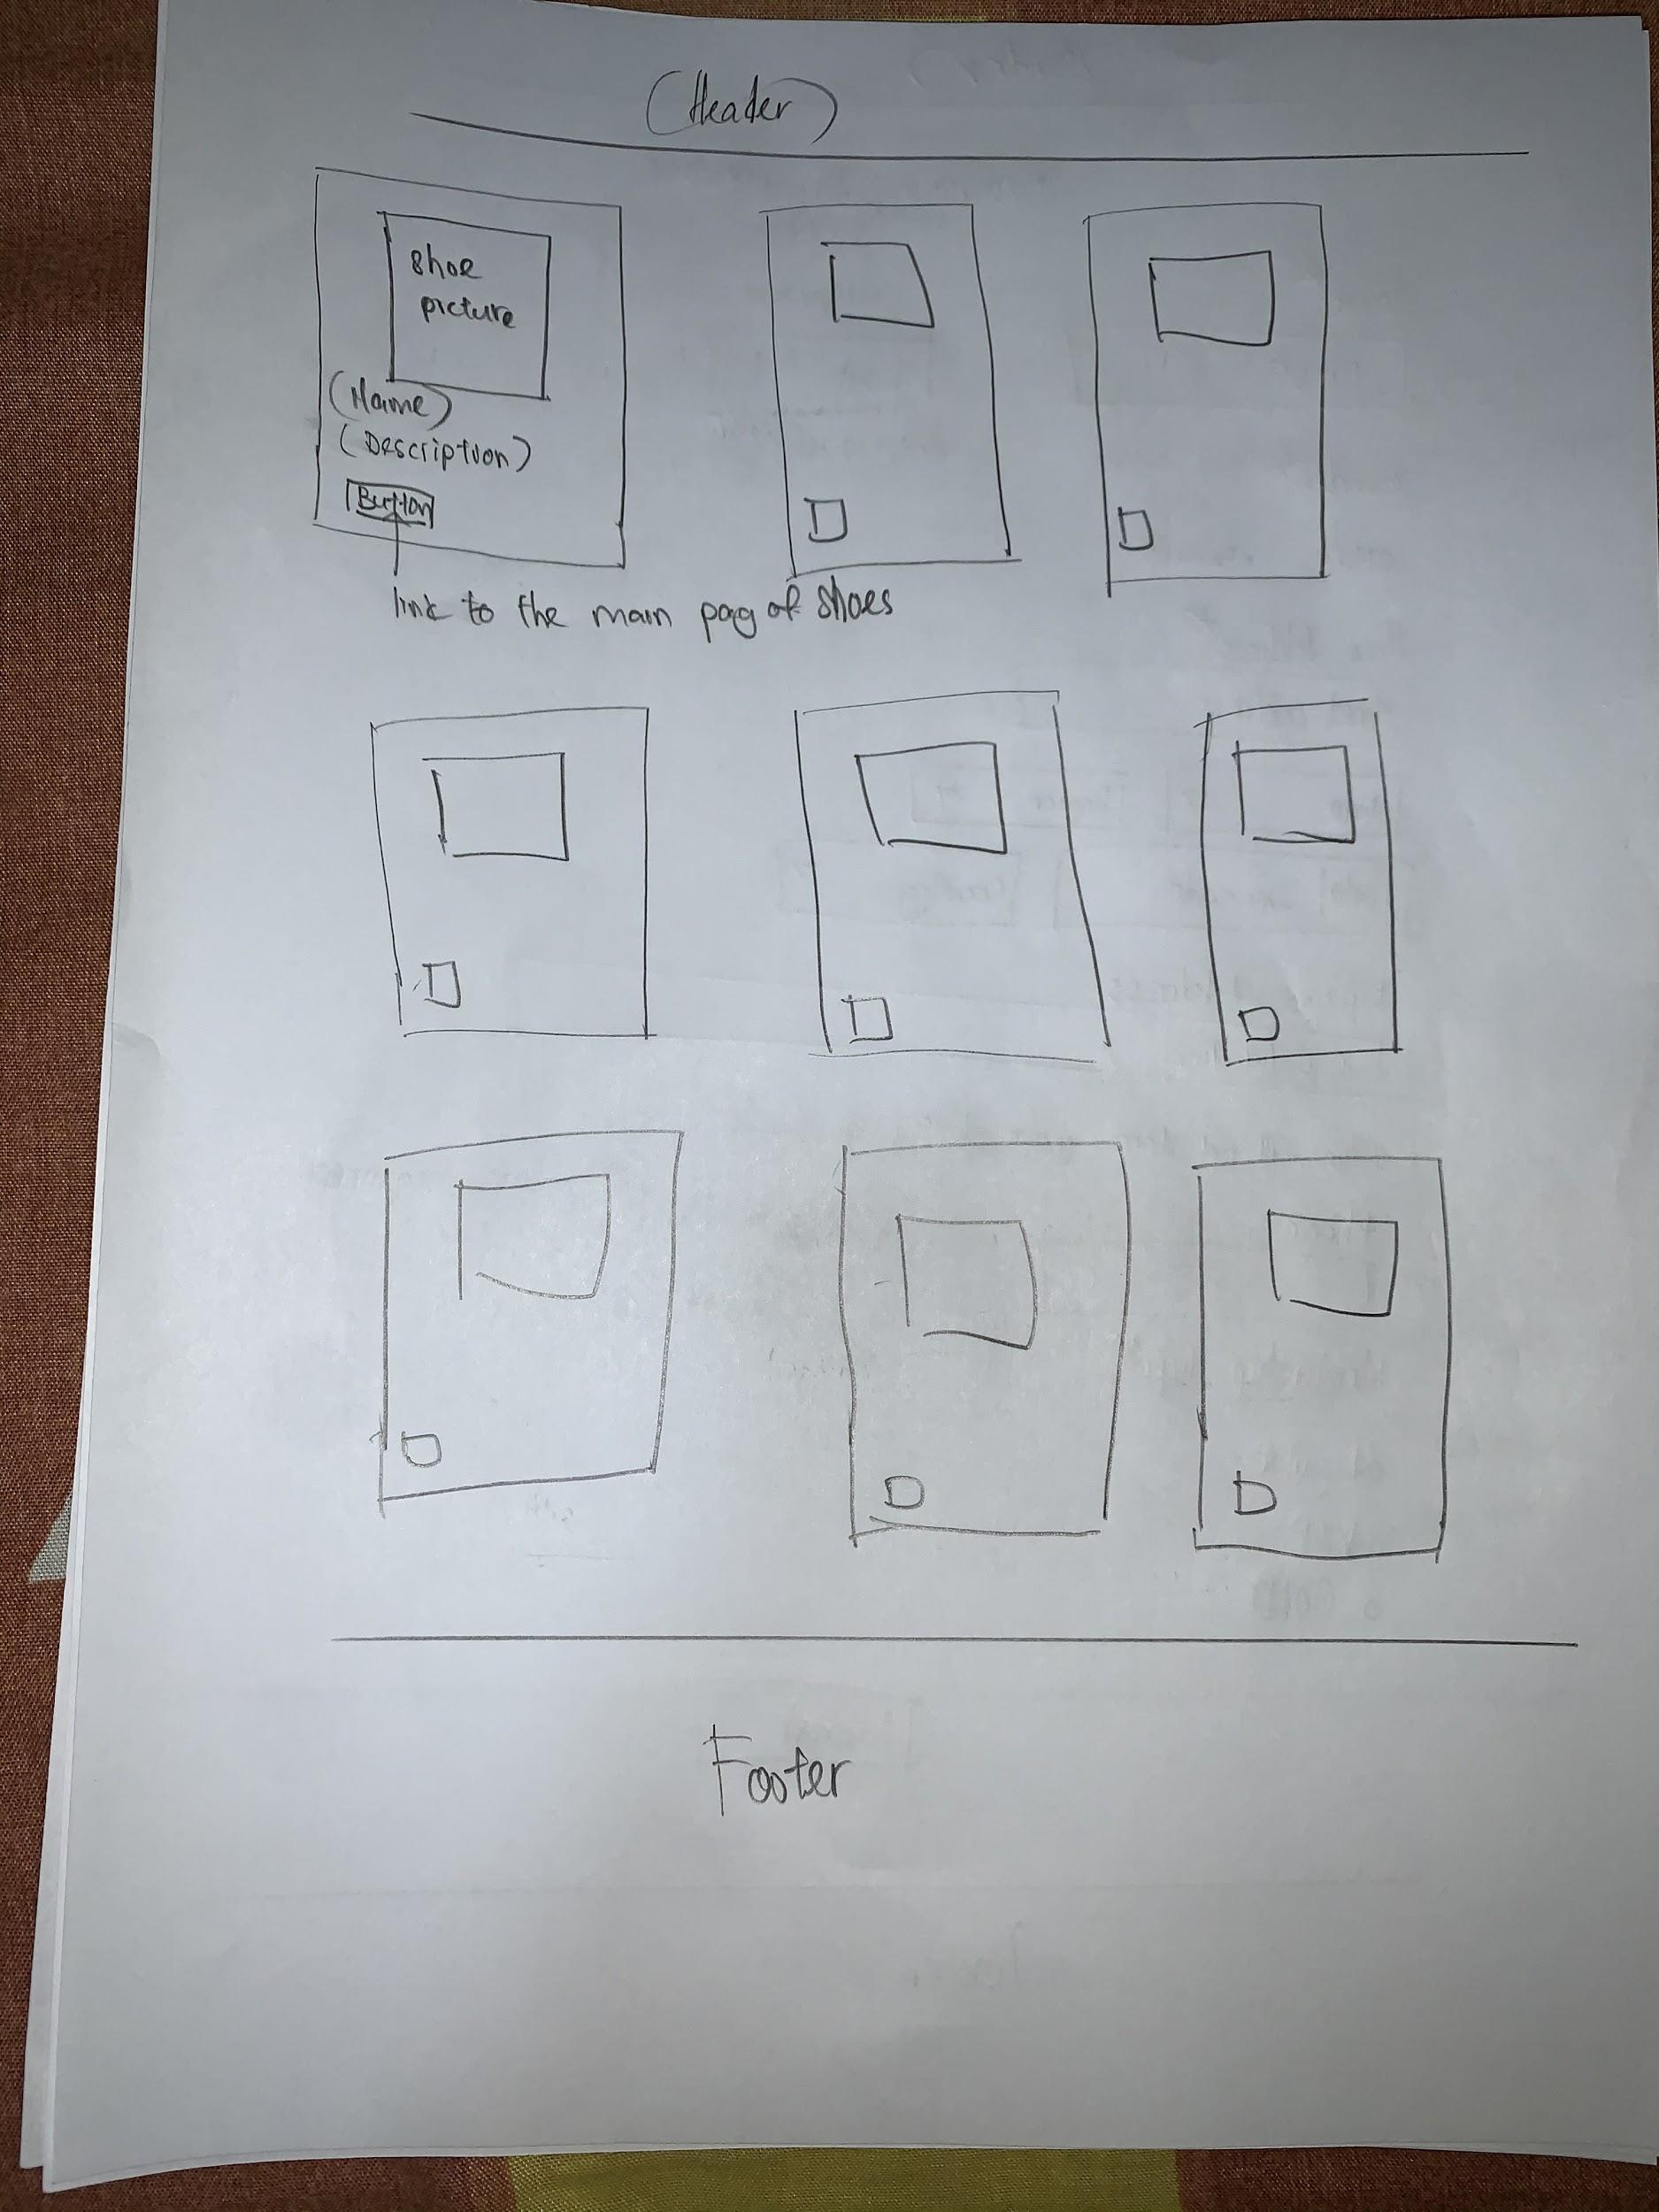 (Header)
shoe
picture
(Name)
(Description)
Button
link to the main pag of shoes
Footer